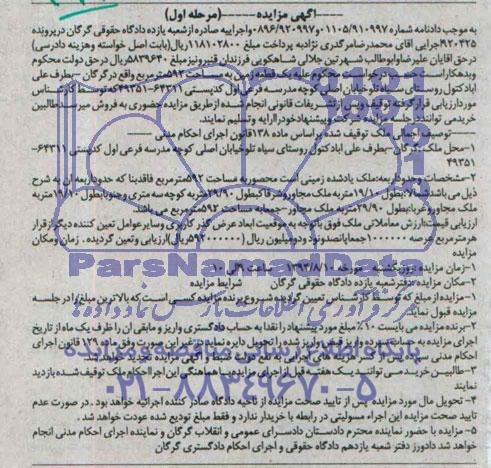 ----آگهی مزایده------(مرحله اول)
به موجب دادنامه شماره ۰۱۱۰۵/۹۱۰۹۹۷ و ۰۸۹۶/۹۲۰۹۹۷ واجراییه صادره ازشعبه یازده دادگاه حقوقی گرگان درپرونده
۹۲۰۴۲۵ اجرایی آقای محمدرضامرگدری نژادبه پرداخت مبلغ ۱۱۸۱۰۲۸۰۰ ریال(بابت اصل خواسته وهزینه دادرسی)
درحق اقایان علیرضاوابوطالب شهرتین جلالی شاهکویی فرزندان قنبرونیزمبلغ ۵۸۳۹۶۴۰ ریال درحق دولت محکوم
وبدهکاراست درخواست محکوم علیه یک قطعه زمین به مساحت ۵۹۲ مترمربع واقع درگرگان –بطرف علی
ابادکتول روستای سیاه تلوخیابان اصلی کوچه مدرسه فرعی اول کدپستی ۶۴۳۱۱-۴۹۳۵۱ که توسط کارشناس
موردارزیابی قرارگرفته توقیف وپس ازتشریفات قانونی انجام شده ازطریق مزایده حضوری به فروش میرسدطالبین
خریدمی توانند درجلسه مزایده شرکت وپیشنهادخودراارایه وتسلیم نمایند.
----توصیف اجمالی ملک توقیف شده براساس ماده ۱۳۸ قانون اجرای احکام مدنی ----
۱-محل ملک:گرگان-بطرف علی ابادکتول روستای سیاه تلوخیابان اصلی کوچه مدرسه فرعی اول کدپستی ۶۴۳۱۱-
۴۹۳۵۱
۲-مشخصات وحدوداربعه:ملک یادشده زمینی است محصوربه مساحت ۵۹۲ مترمربع فاقدبنا که حدوداربعه ان به شرح
ذیل می باشدشمالا:بطول ۱۹/۱۰ متربه ملک مجاوروشرقابطول ۲۹/۹۰ متربه کوچه سه متری وجنوبابطول ۱۹/۸۰ متربه
ملک مجاوروغربا:بطول ۲۹/۹۰ متربه ملک مجاور-جمعابه مساحت ۵۹۲ مترمربع می باشد.
ارزیابی قیمت:ارزش معاملاتی ملک فوق باتوجه به موقعیت ابعاد عرض گذر کاربری وسایرعوامل تعین کننده دیگرازقرار
هرمترمربع عرصه ۱۰۰۰۰۰۰ جمعاپانصدونود ودومیلیون ریال (۵۹۲۰۰۰۰۰۰ریال)ارزیابی وتعین گردیده . زمان ومکان
مزایده
۱-زمان مزایده :روزیکشنبه مورخه ۱۳۹۳/۸/۱۰ ساعت ۹ الی ۱۰
۲-مکان مزایده :دفترشعبه یازده دادگاه حقوقی گرگان شرایط مزایده
۱-مزایده از مبلغ که توسط کارشناس تعیین گردیده شروع برنده مزایده کسی است که بالاترین مبلغ را در جلسه
مزایده قبول نماید.
۲-برنده مزایده می بایست ۱۰٪ مبلغ موردپیشنهاد را نقدا به حساب دادگستری واریز و مابقی ان را ظرف یک ماه از تاریخ
اجرای مزایده به حساب سپرده واریز وفیش واریز شده را تحویل دایره نماید درغیر این صورت وفق ماده ۱۲۹ قانون اجرای
احکام مدنی سپرده پس از کسر هزینه های اجرایی به نفع دولت ضبط و آگهی مزایده تجدید خواهد شد.
۳-طالبین خرید می توانند یک هفته قبل از اجرای مزایده با هماهنگی این اجرا احکام ملک توقیف شده بازدید
نمایند
۴-تحویل مال مورد مزایده پس از تایید صحت مزایده از ناحیه دادگاه صادر کننده اجرائیه خواهد بود . در صورت عدم
تایید صحت مزایده این اجراء مسولیتی در رابطه با خریدار ندارد و فقط مبلغ تودیع شده عودت خواهد شد .
۵-مزایده با حضور نماینده محترم دادستان دادسرای عمومی و انقلاب گرگان و نماینده اجرای احکام مدنی انجام
خواهد شد دادورز دفتر شعبه یازدهم دادگاه حقوقی و اجرای احکام دادگستری گرگان
ParsNamadData
۰۲۱-۸۸۳۴۹۶۷۰-۵